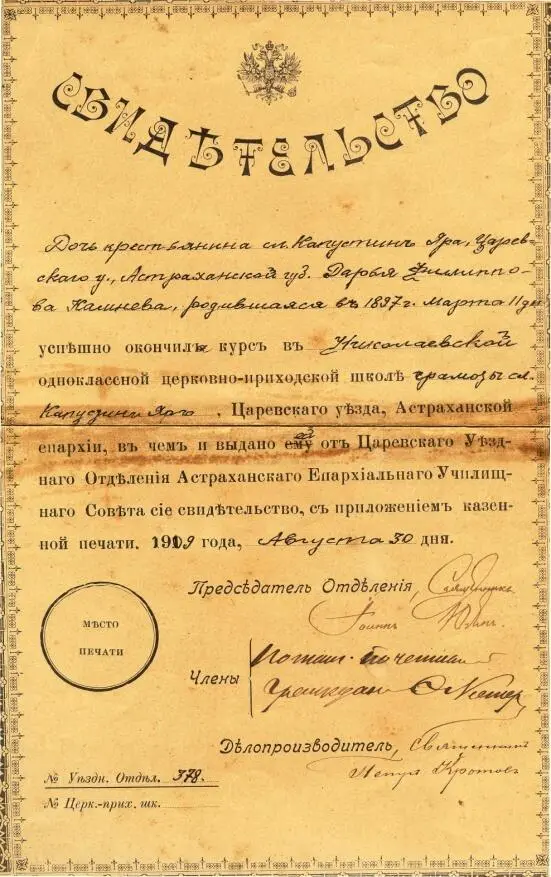 СВИДѢТЕЛЬСТВО
Дочь крестьянина сл. Капустинъ Яра, Царев-
скаго у., Астраханской губ. Дарья Филиппо-
ва Камнева, родившаяся въ 1897 г. Марта 11 дня
успѣшно окончила курсъ въ Николаевской
одноклассной церковно-приходской школѣ грамоты сл.
Капустинъ Яръ, Царевскаго уѣзда, Астраханской
епархіи, въ чемъ и выдано ей отъ Царевскаго Уѣзд-
наго Отдѣленія Астраханскаго Епархіальнаго Училищ-
наго Совѣта сіе свидѣтельство, съ приложеніемъ казен-
ной печати. 1909 года, Августа 30 дня.
Предсѣдатель Отдѣленія, Священникъ
Іоаннъ
МѢСТО
ПЕЧАТИ
Члены
Потом. Почетный
Гражданинъ
Дѣлопроизводитель, Священникъ
Петръ Кротовъ
№ Уѣздн. Отдѣл. 378.
№ Церк.-прих. шк.